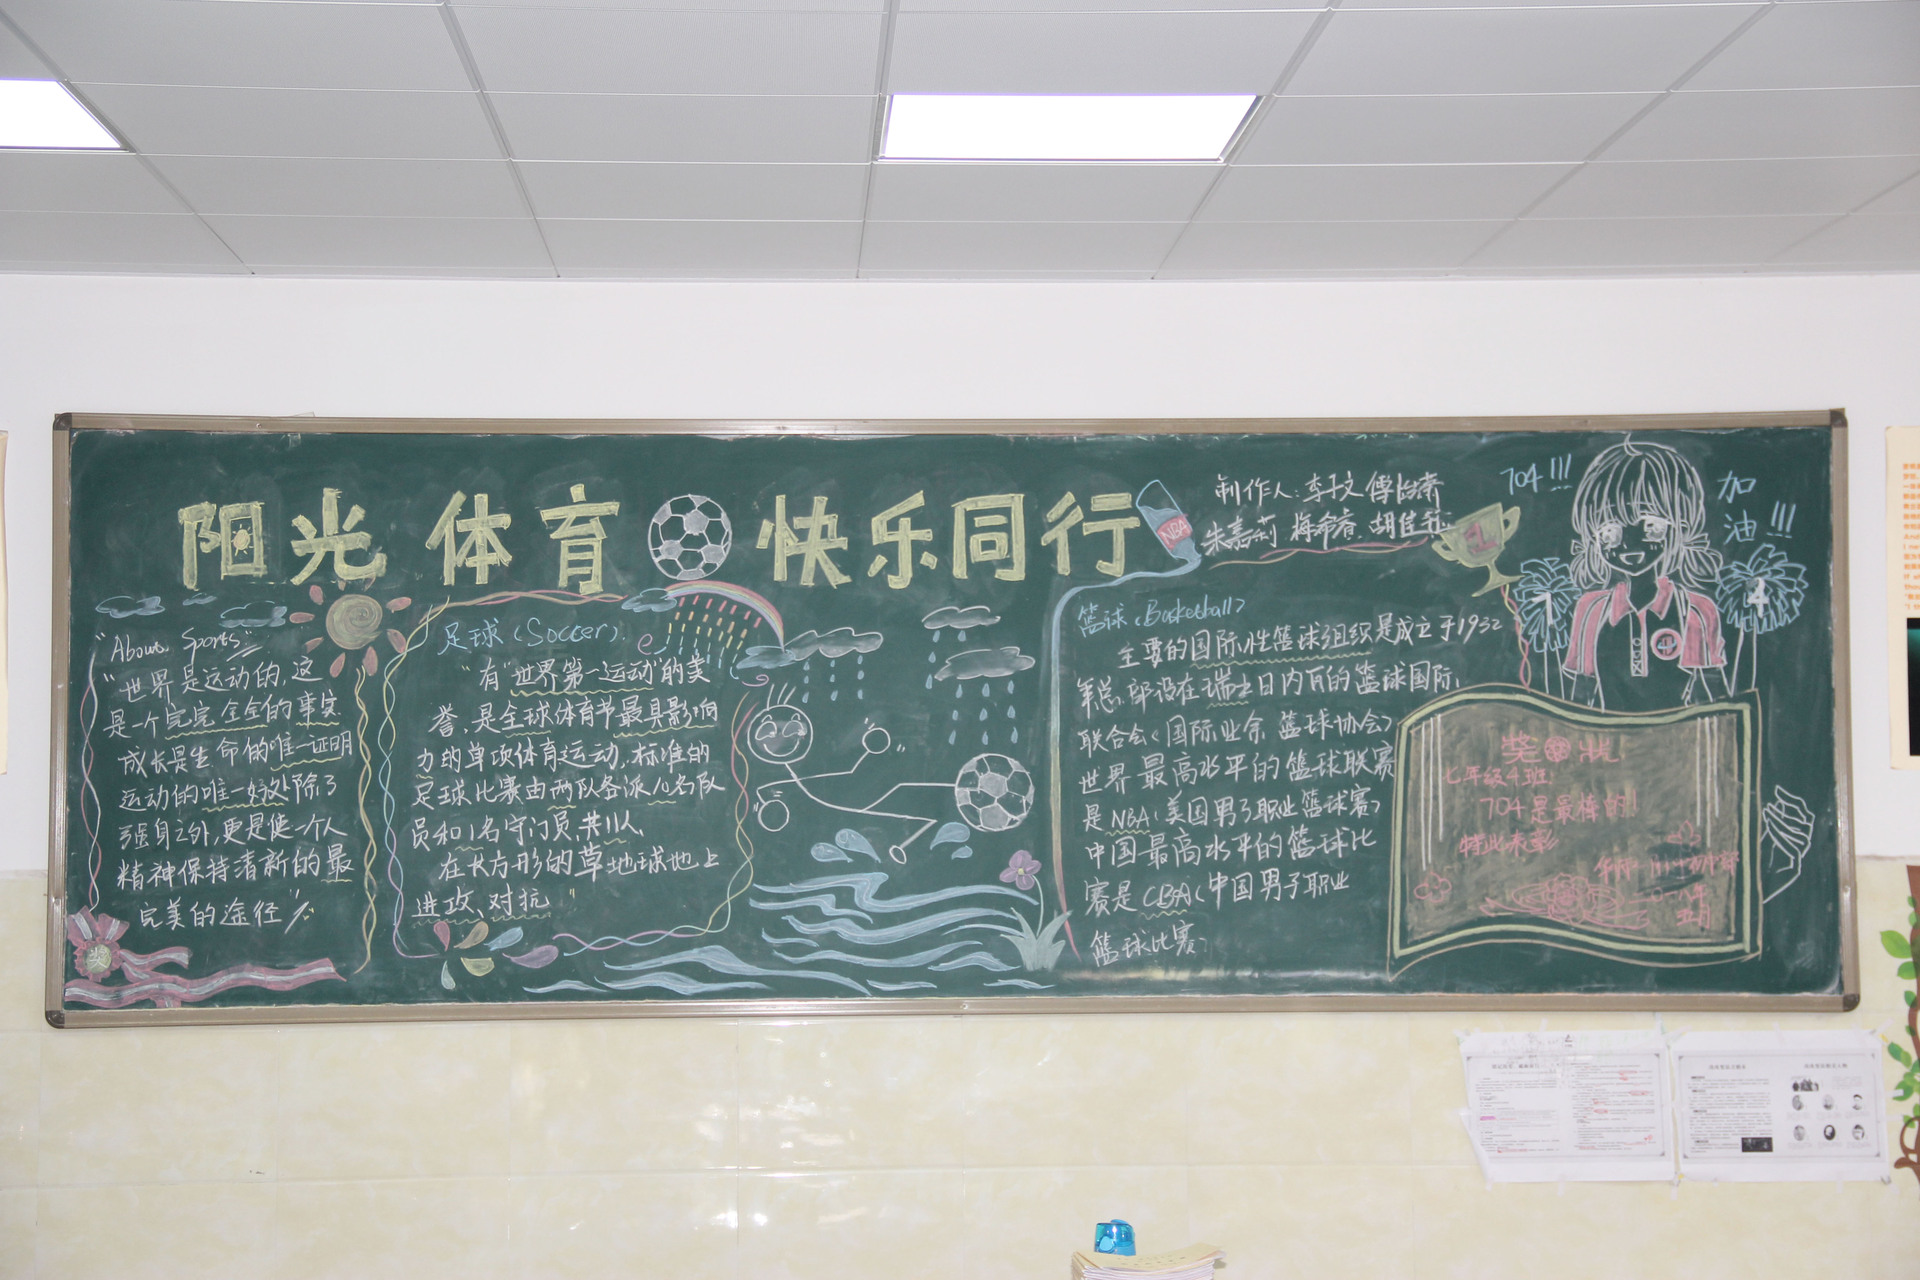 阳光 体育 快乐同行
NBA
制作人:李子文
朱嘉莉 梅希睿 胡佳
704!!!
加油!!!
1
4
4
"About Sports"
"世界是运动的,这
是一个完完全全的事实
成长是生命的唯一证明
运动的唯一好处除了
强身之外,更是使一个人
精神保持清新的最
完美的途径"
奖
足球(Soccer)
"有"世界第一运动"的美
誉,是全球体育节最具影响
力的单项体育运动,标准的
足球比赛由两队各派10名队
员和1名守门员,共11人
在长方形的草地球地上
进攻、对抗"
篮球(Basketball)
主要的国际性篮球组织是成立于1932
年总部设在瑞士日内瓦的篮球国际
联合会(国际业余篮球协会)
世界最高水平的篮球联赛
是NBA(美国男子职业篮球赛)
中国最高水平的篮球比
赛是CBA(中国男子职业
篮球比赛)
奖状
七年级4班:
704是最棒的!
特此未彰
五月